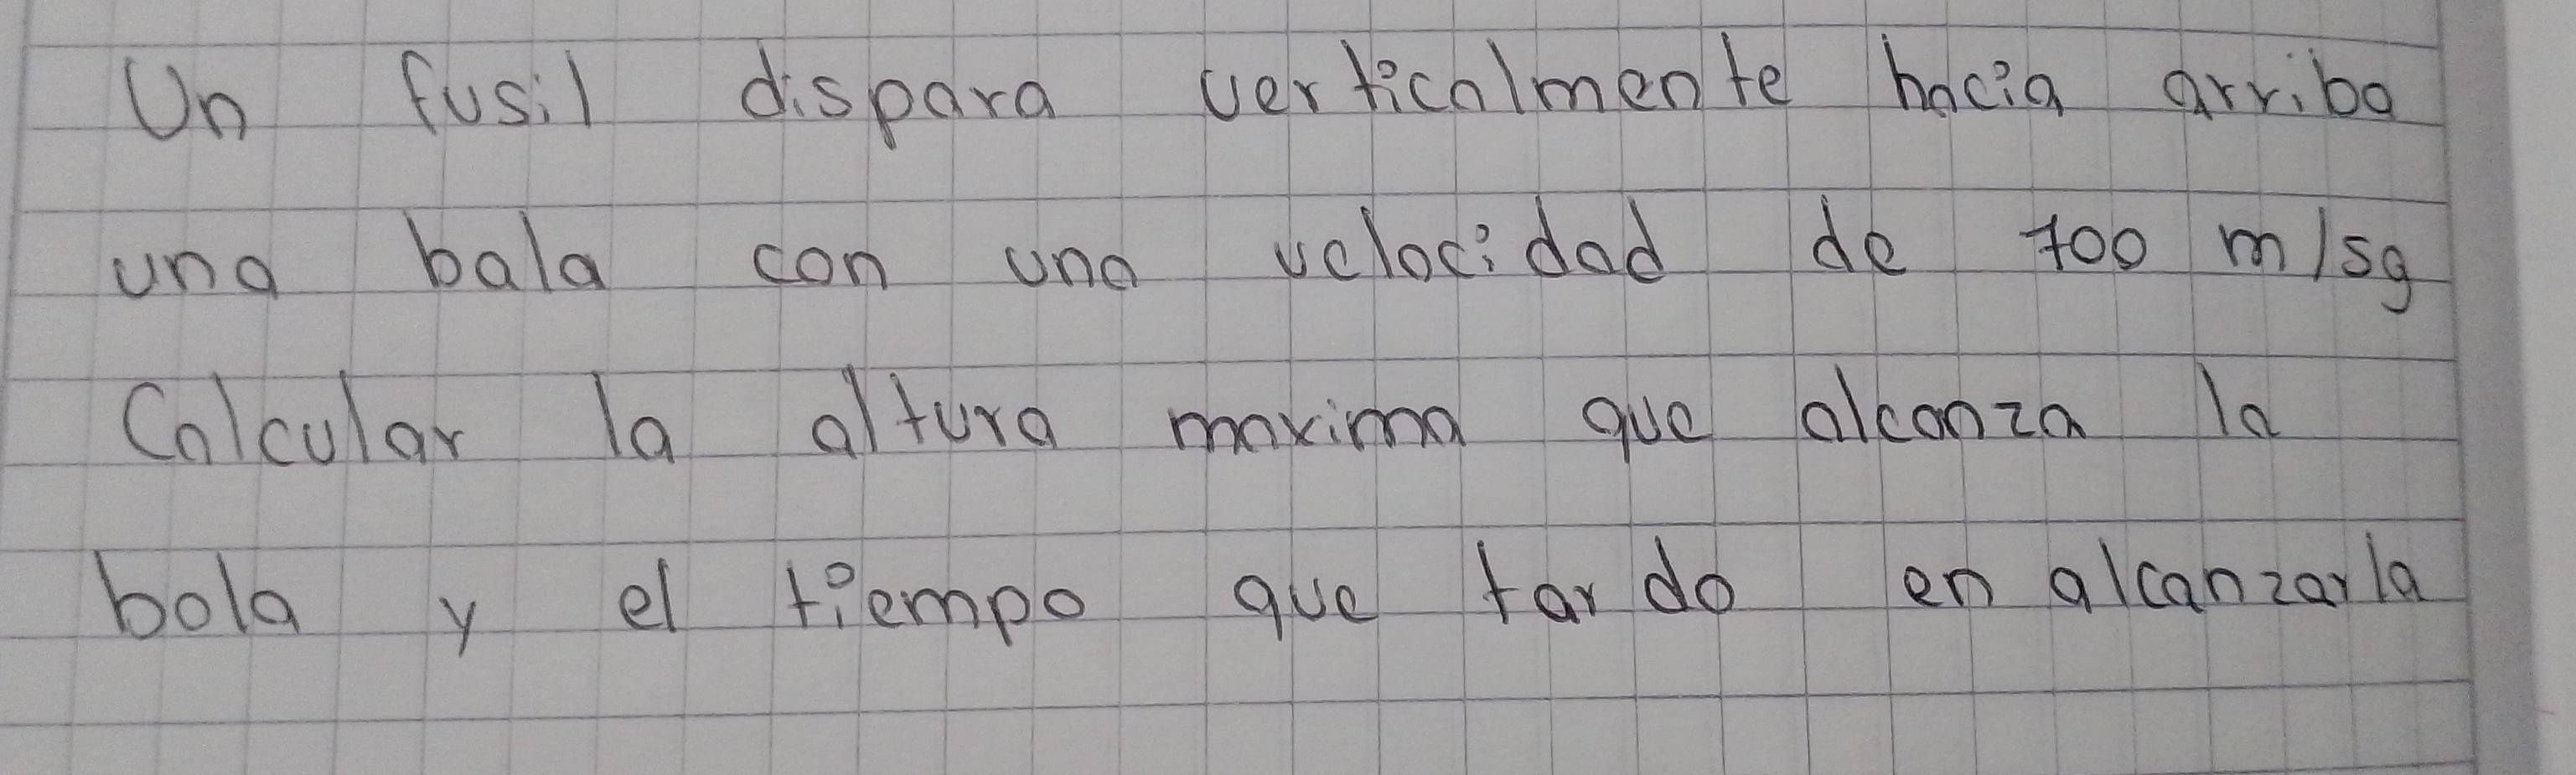 Un fusil dispara verticalmente hacia arriba
una bala con una velocidad de 700 m/sg
Calcular la altura maxima que alcanza la
bala y el tiempo que tardo en alcanzarla